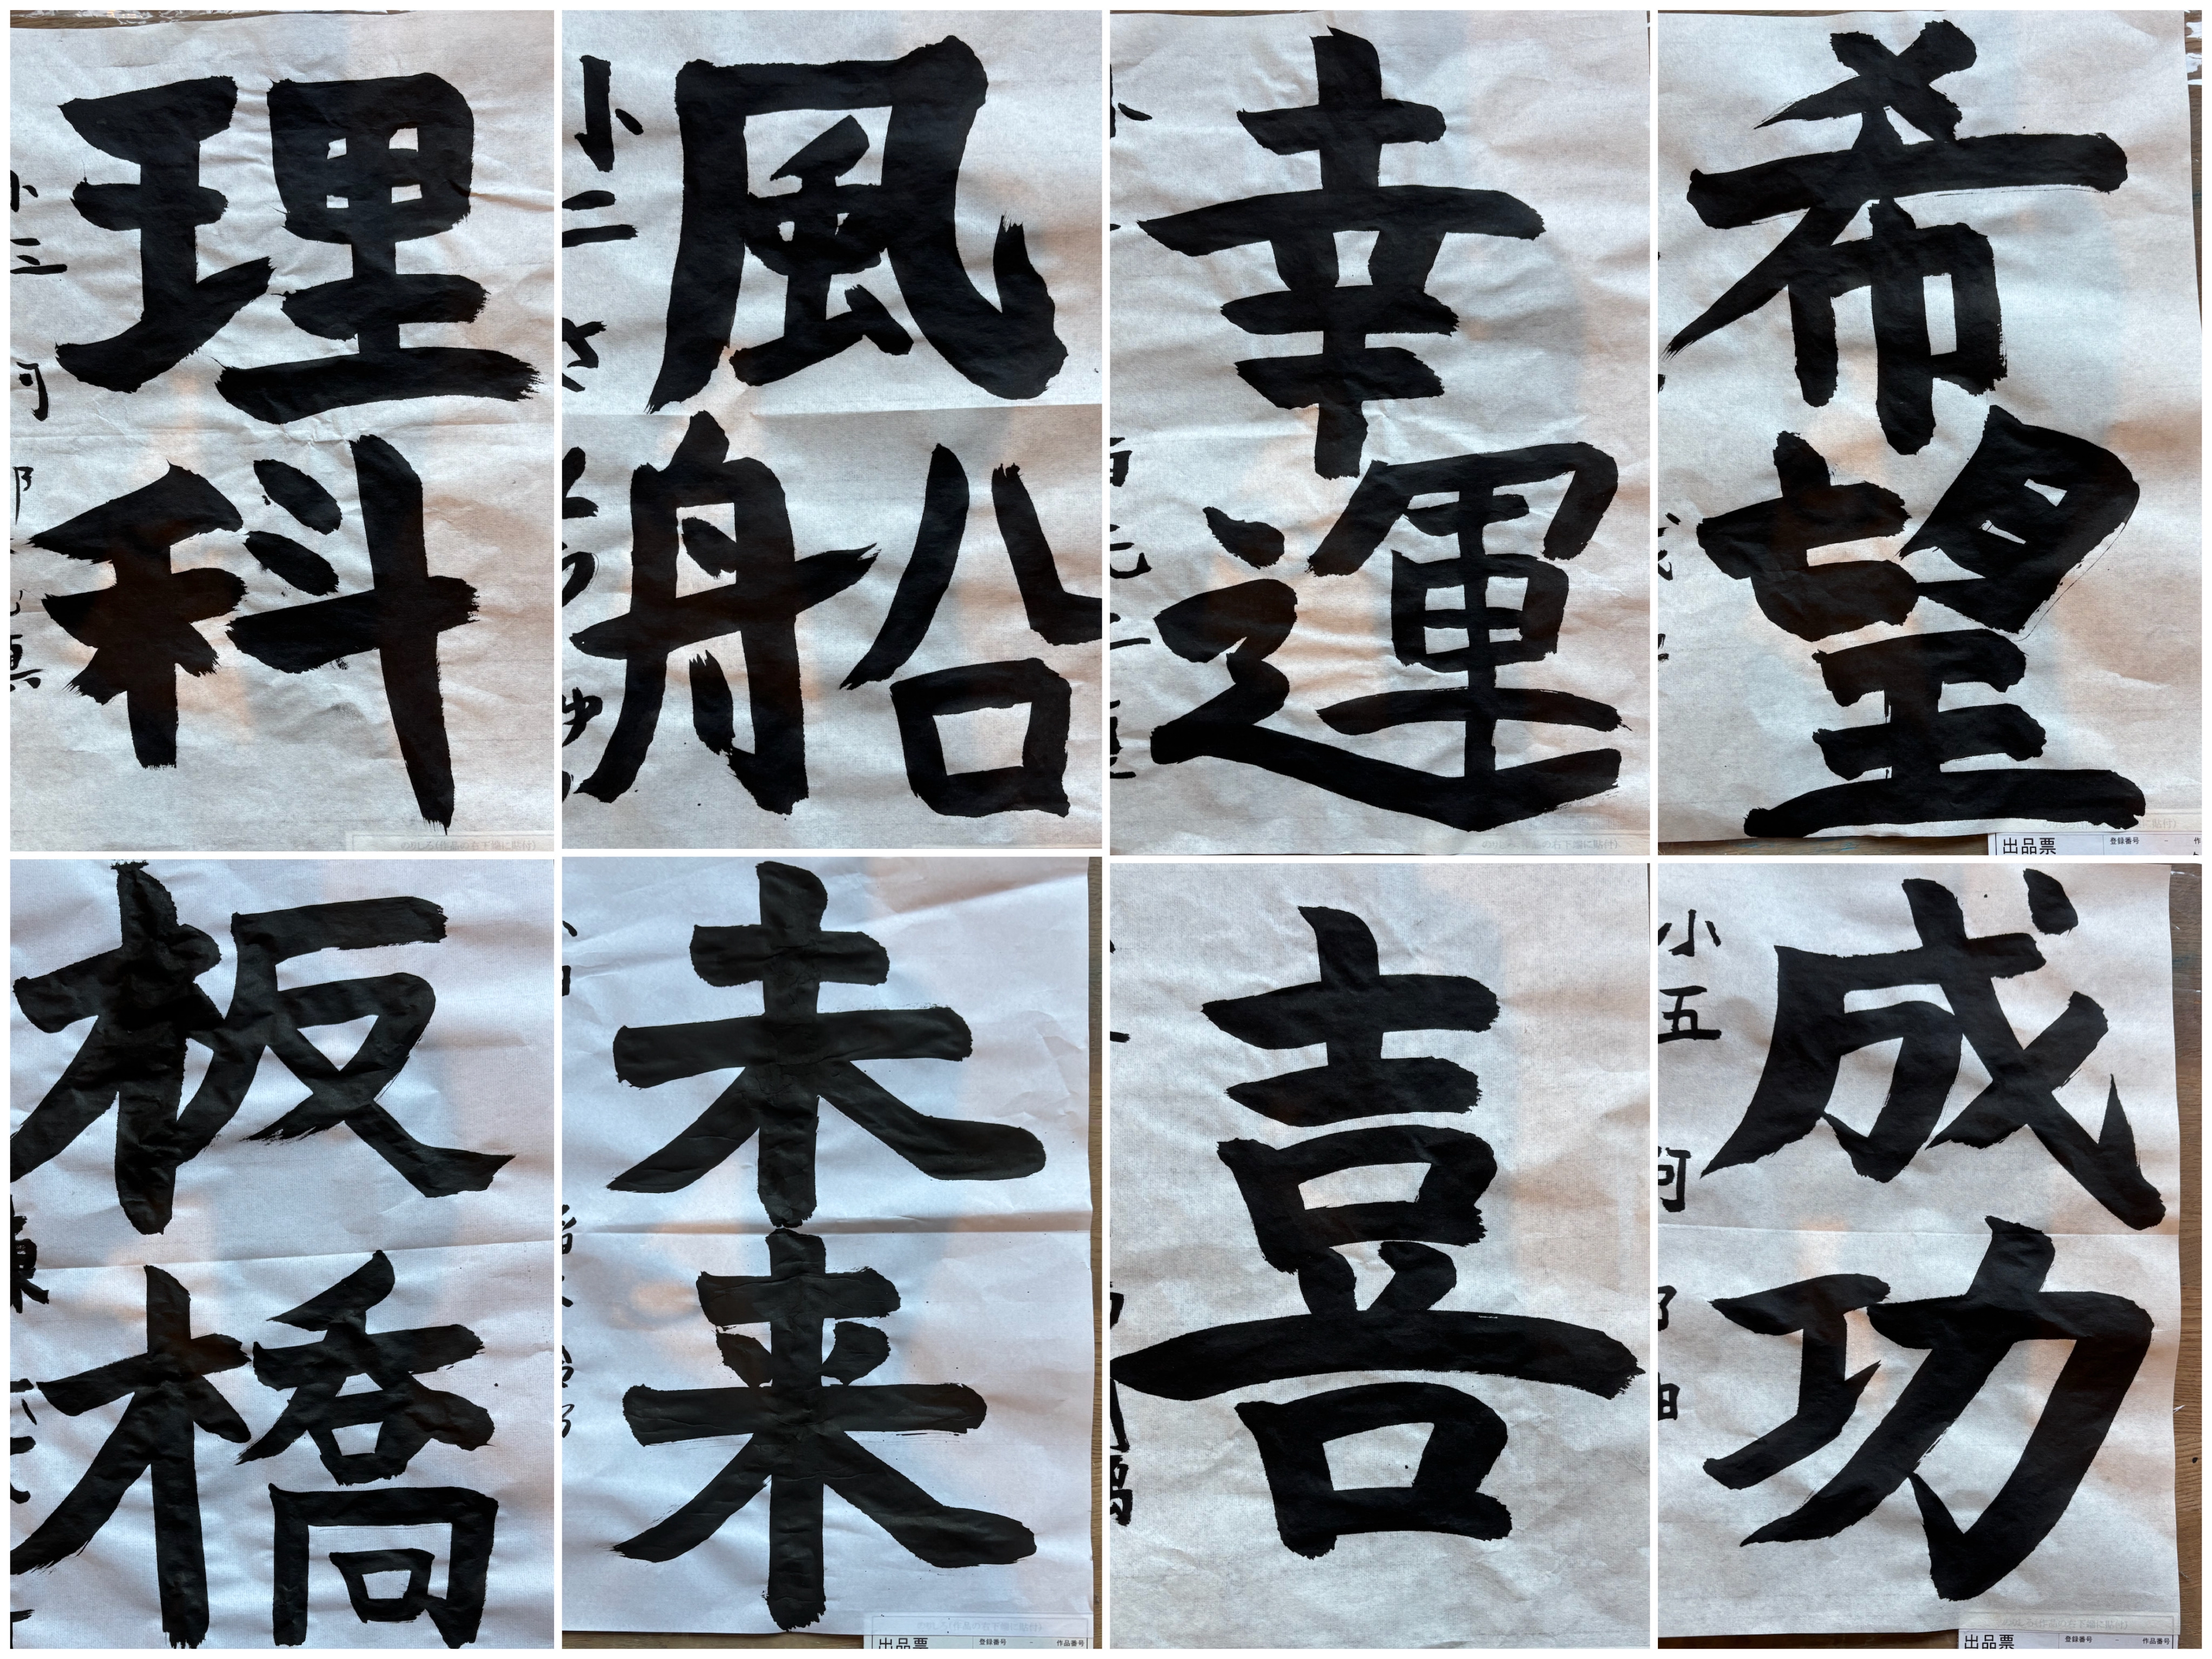 理科
小三
風船
小二
幸運
希望
出品票
登録番号
板橋
未来
出品票
登録番号
作品番号
喜
成功
小五
出品票
登録番号
作品番号